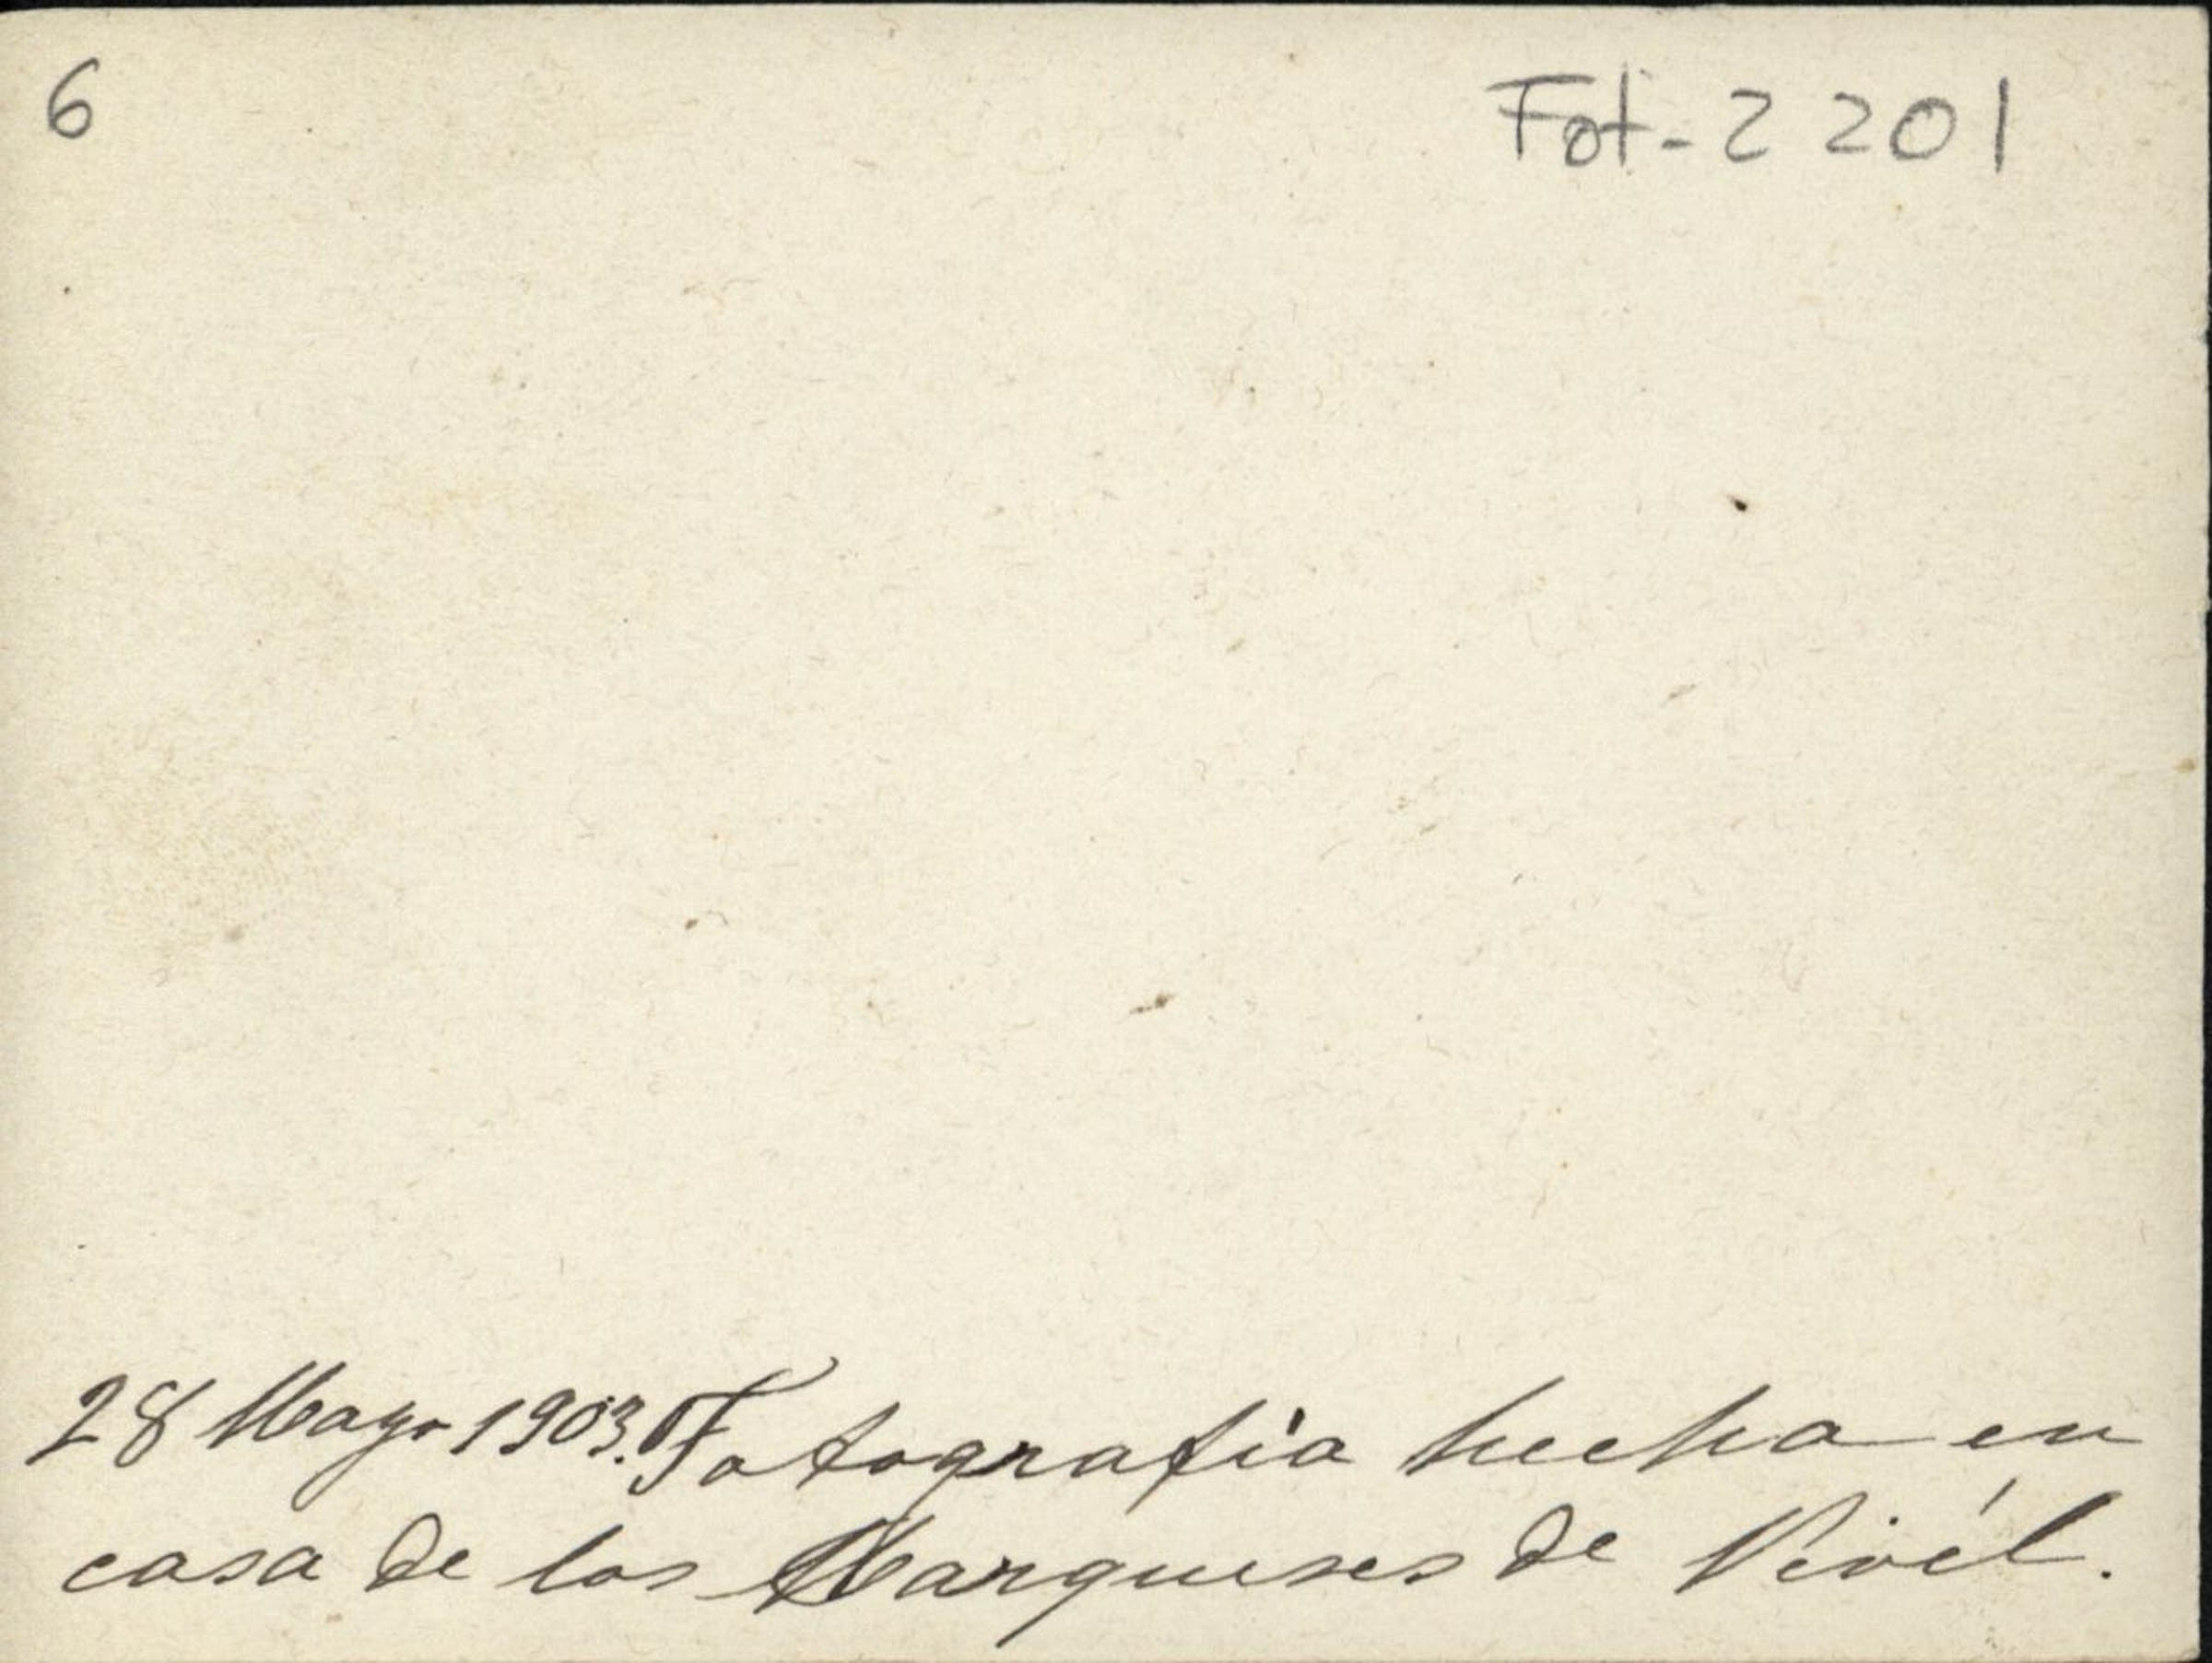 6
Fot-2201
28 Mayo 1903. Fotografía hecha en
casa de los Marqueses de Vivél.